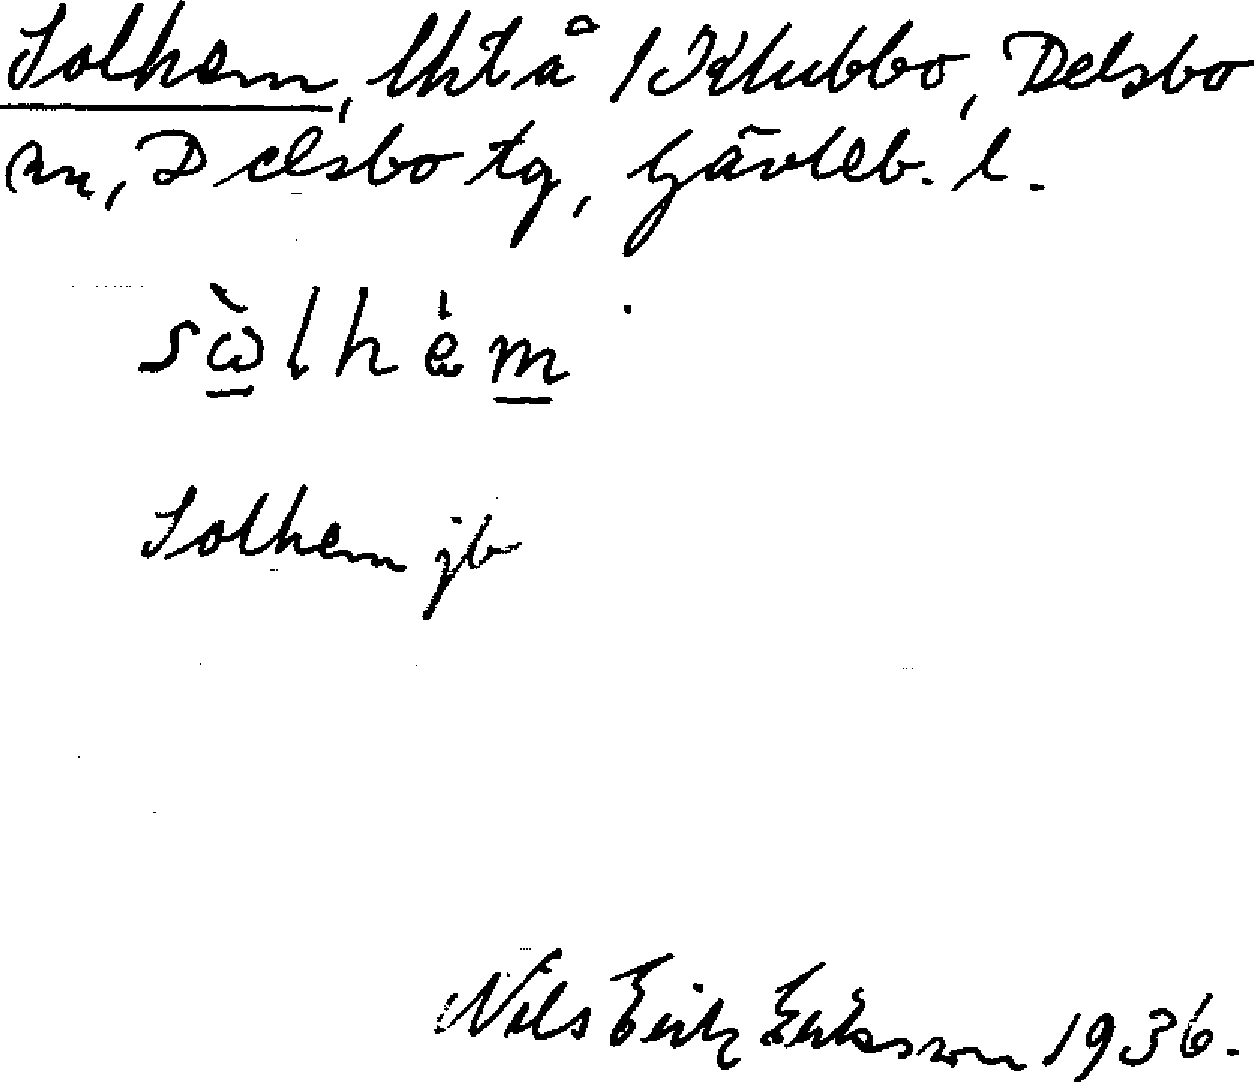 Solhem, lht å 1 Klubbo, Delsbo
sn, Delsbo tg, Gävleb. l.
sòlhèm
Solhem jb
Nils Erik Eriksson 1936.